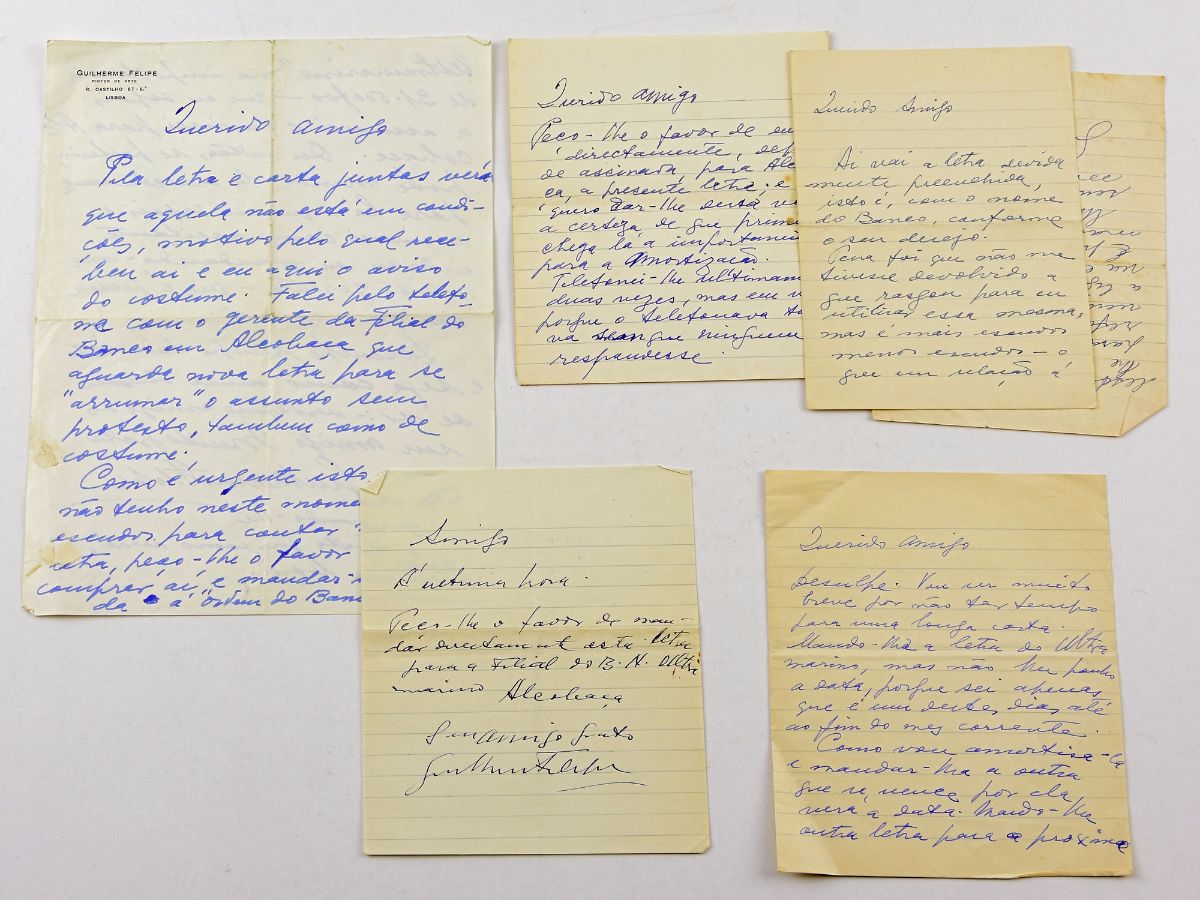 GUILHERME FELIPE
PINTOR DE ARTE
R. CASTILHO 67-5.º
LISBOA
Querido amigo
Pela letra e carta juntas verá
que aquela não está em condi-
ções, motivo pelo qual rece-
beu aí e eu aqui o aviso
do costume. Falei pelo telefo-
ne com o gerente da Filial do
Banco em Alcobaça que
aguarda nova letra para se
"arrumar" o assunto sem
protesto, tambem como de
costume.
Como é urgente isto
não tenho neste mome
escudos para
etra, peço-lhe o favor
comprar aí, e mandar-
da à "ordem do Banc
Querido amigo
Peço-lhe o favor de en
directamente, dep
de assinada, para Alco
ça, a presente letra; e
quero dar-lhe desta ve
a certeza de que prime
chega la a importanci
para a Amortização.
Telefonei-lhe ultimam
duas vezes, mas em v
porque o telefonava to
va sem que ninguem
respondesse.
Querido Amigo
Aí vai a letra devida
mente preenchida,
isto é, com o nome
do Banco, conforme
o seu desejo.
Pena foi que não me
tivesse devolvido a
que rasgou para eu
utilizar essa mesma,
mas é mais escudos
menos escudos – o
que em relação á
Amigo
Á ultima hora.
Peço-lhe o favor de man-
dar directamente esta letra
para a Filial do B. N. Ultra
marino Alcobaça
Seu Amigo Grato
Guilherme Felipe
Querido amigo
desculpe. Vou ser muito
breve por não ter tempo
para uma longa carta.
Mando-lhe a letra do Ultra
marino, mas não lhe ponho
a data, porque sei apenas
que é um destes dias até
ao fim do mes corrente..
Como vou amortisa-la
e mandar-lha a outra
que se vence por ela
verá a data. Mando-lhe
outra letra para a proxima